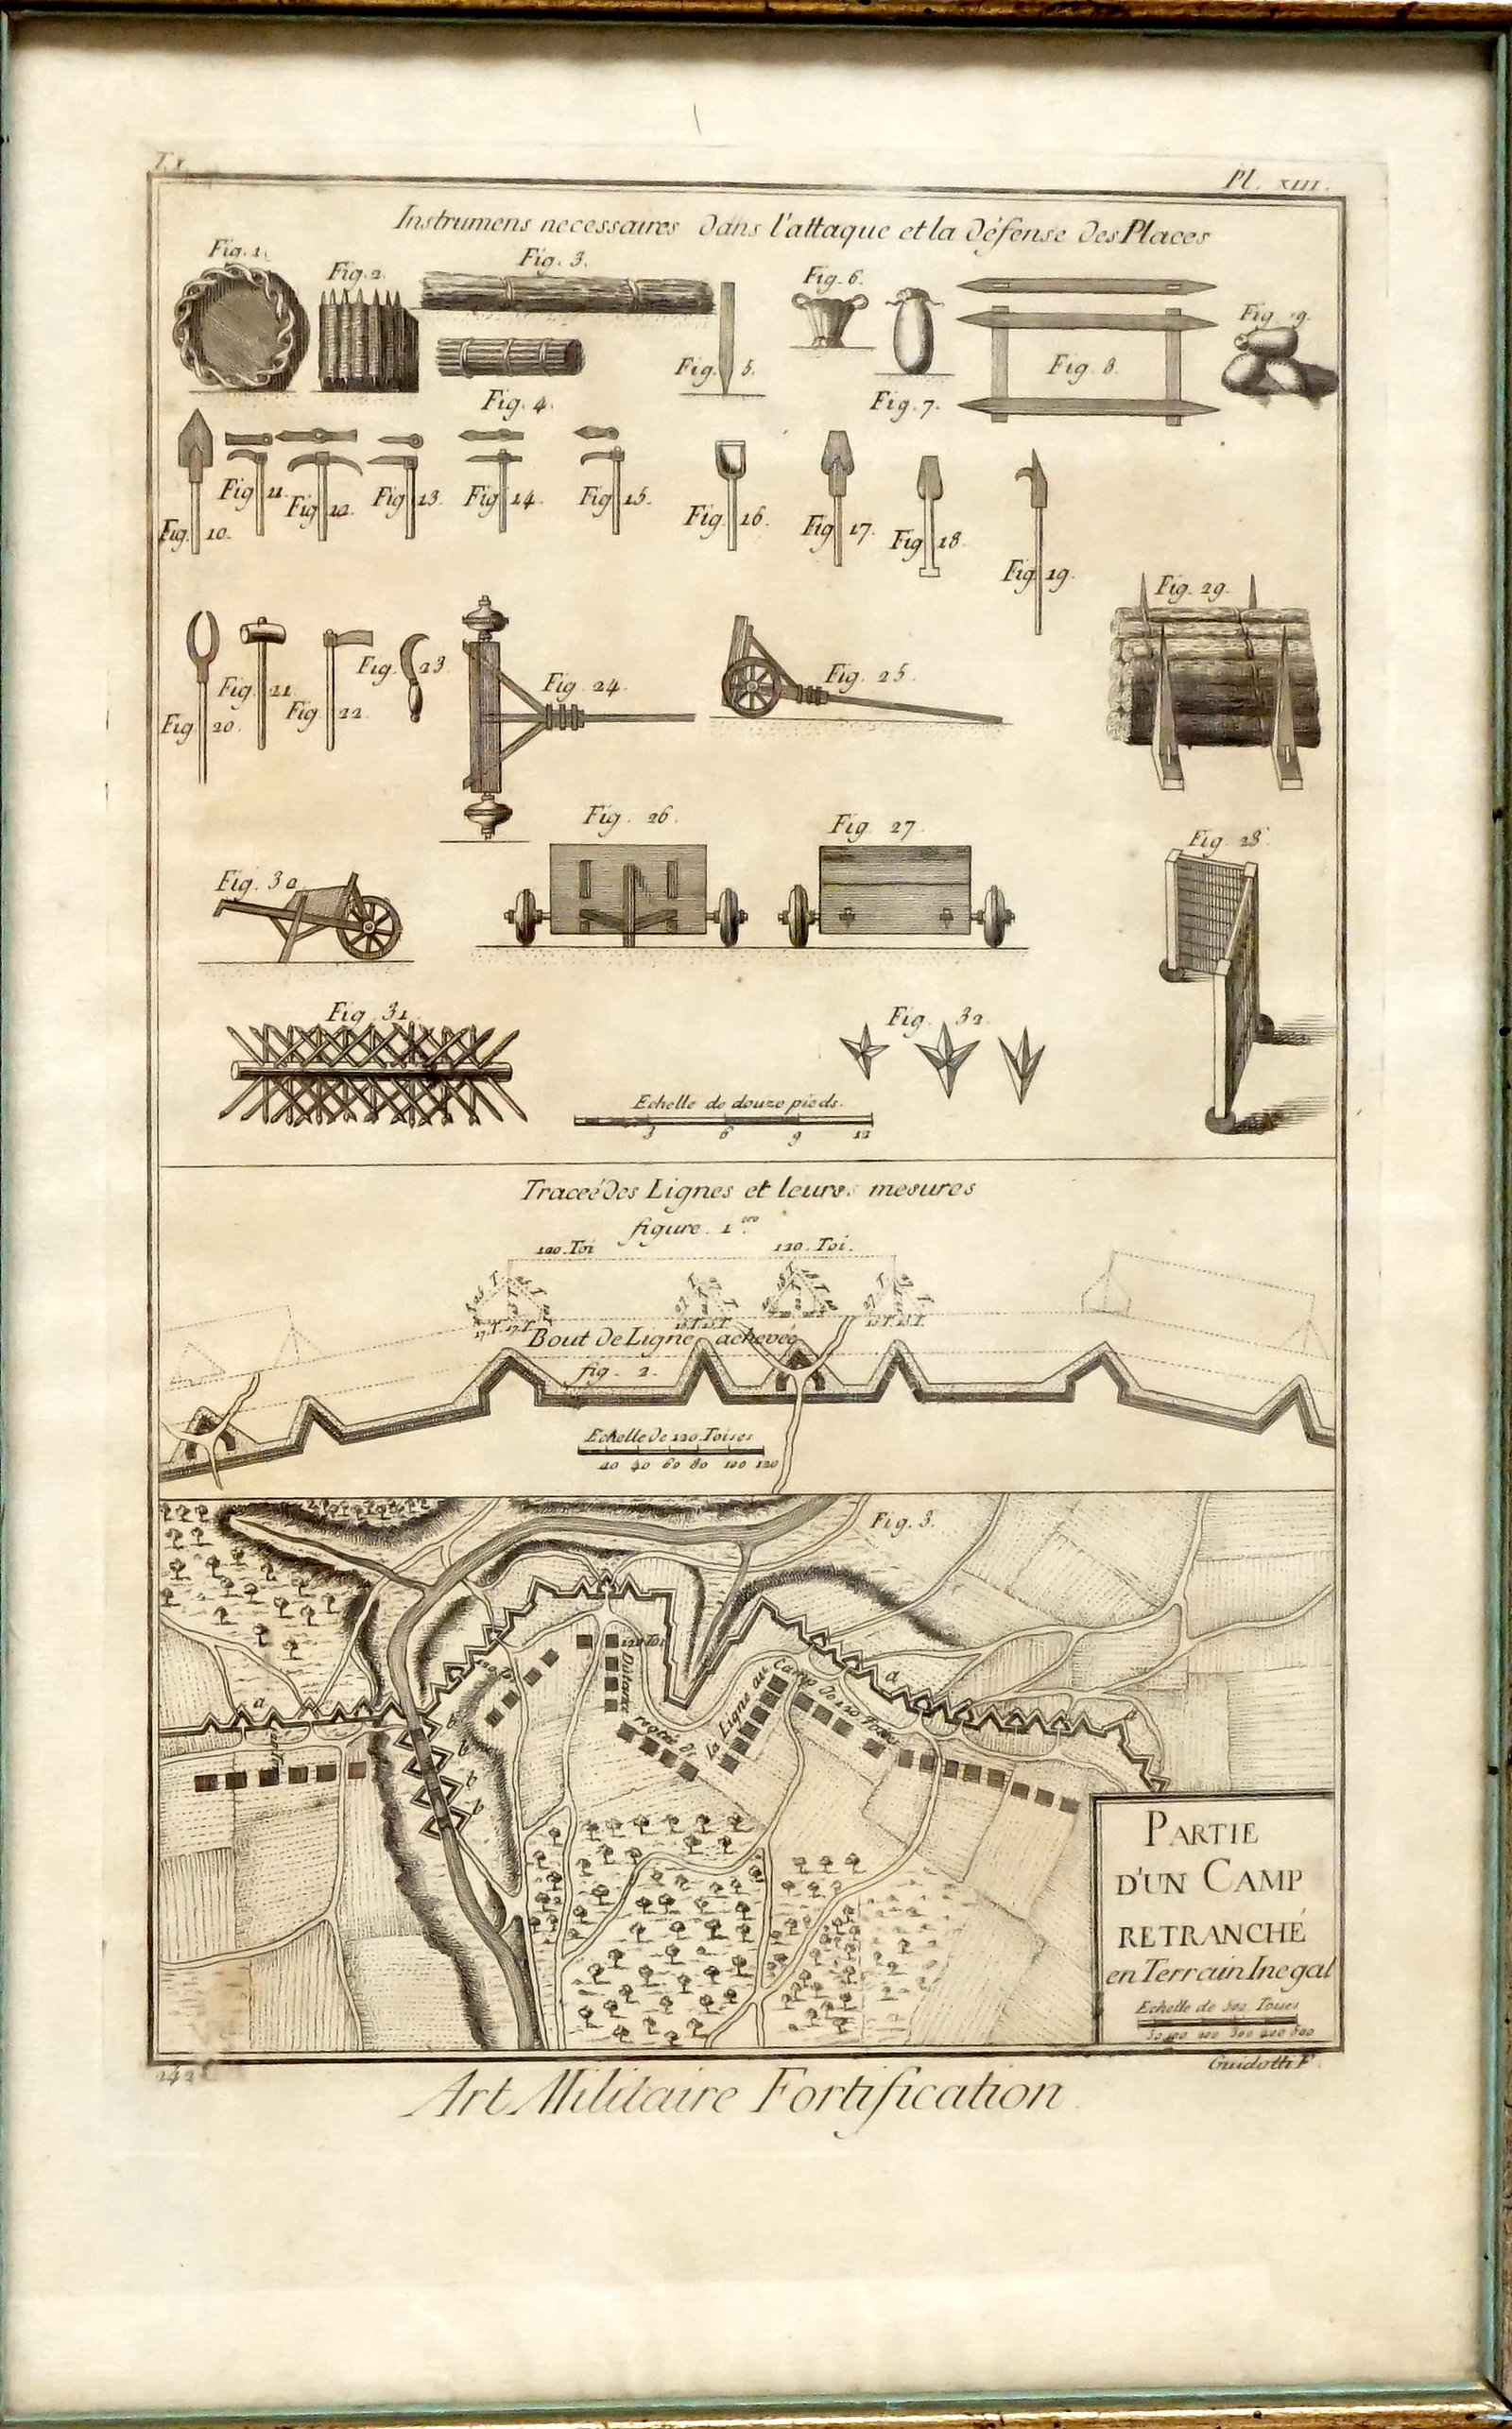 T.I.
Pl. XIII.
Instrumens necessaires dans l'attaque et la défense des Places
Fig. 1.
Fig. 2.
Fig. 3.
Fig. 4.
Fig. 5.
Fig. 6.
Fig. 7.
Fig. 8.
Fig. 9.
Fig. 10.
Fig. 11.
Fig. 12.
Fig. 13.
Fig. 14.
Fig. 15.
Fig. 16.
Fig. 17.
Fig. 18.
Fig. 19.
Fig. 29.
Fig. 20.
Fig. 21.
Fig. 22.
Fig. 23.
Fig. 24.
Fig. 25.
Fig. 26.
Fig. 27.
Fig. 28.
Fig. 30
Fig. 31.
Fig. 32.
Echelle de douze pieds.
3 6 9 12
Traceé des Lignes et leurs mesures
figure. 1.ere
120. Toi
120. Toi.
Bout de Ligne achevée
fig. 2.
Echelle de 120 Toises
20 40 60 80 100 120
Fig. 3.
a
a
b
b
b
120 Toi
Distance
la Ligne au Camp de 120 Toises
PARTIE
D'UN CAMP
RETRANCHÉ
en Terrain Inegal
Echelle de 500 Toises
50 100 200 300 400 500
Guidotti F.
Art Militaire Fortification